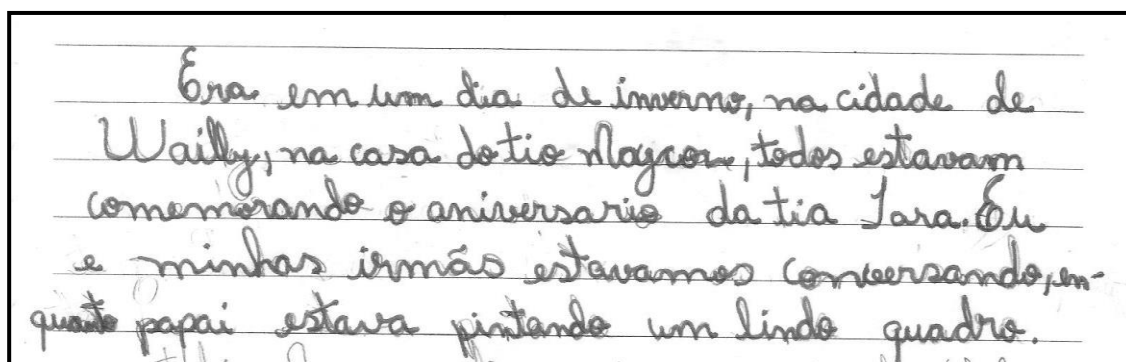 Era em um dia de inverno, na cidade de
Wailly, na casa do tio Maycon, todos estavam
comemorando o aniversario da tia Iara. Eu
e minhas irmãs estavamos conversando, en-
quanto papai estava pintando um lindo quadro.